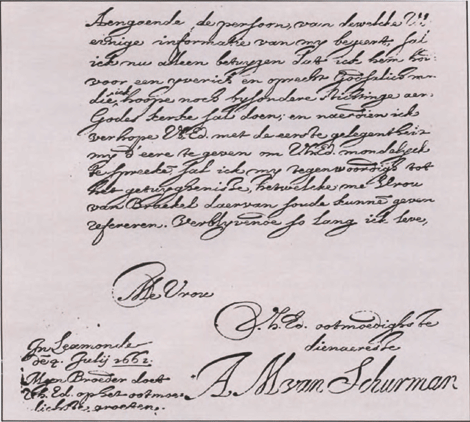 Aengaende de persoon, van dewelke U.
eenige informatie van my begeert, sal
ick nu alleen betuygen dat ick hem
voor een yverich en oprecht
die ick hoope noch bysondere Stichtinge aen
Godes kercke sal doen; en naerdien ick
verhope UhEd. met de eerste gelegentheit
my d'eere te geven om UhEd. mondelyck
te spreeken, sal ick my tegenwoordigh tot
het getuygenisse, hetwelcke me Vrou
van Brakel daervan soude kunne geven
refereren. Verblyvende so lang ick leve,
Me Vrou
U.h.Ed. ootmoedighste
dienaeresse
A. M. van Schurman
In Lexmonde
Julij 1662.
Myn Broeder doet
Uh.Ed. op het ootmoe-
dichste groeten.